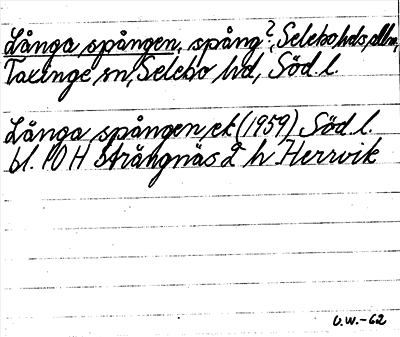 Långa spången, spång?, Selebo hds allm,
Taxinge sn, Selebo hd, Söd. l.
Långa spången, ek (1959) Söd. l.
bl. 10 H Strängnäs 2 h Herrvik
U.W.-62